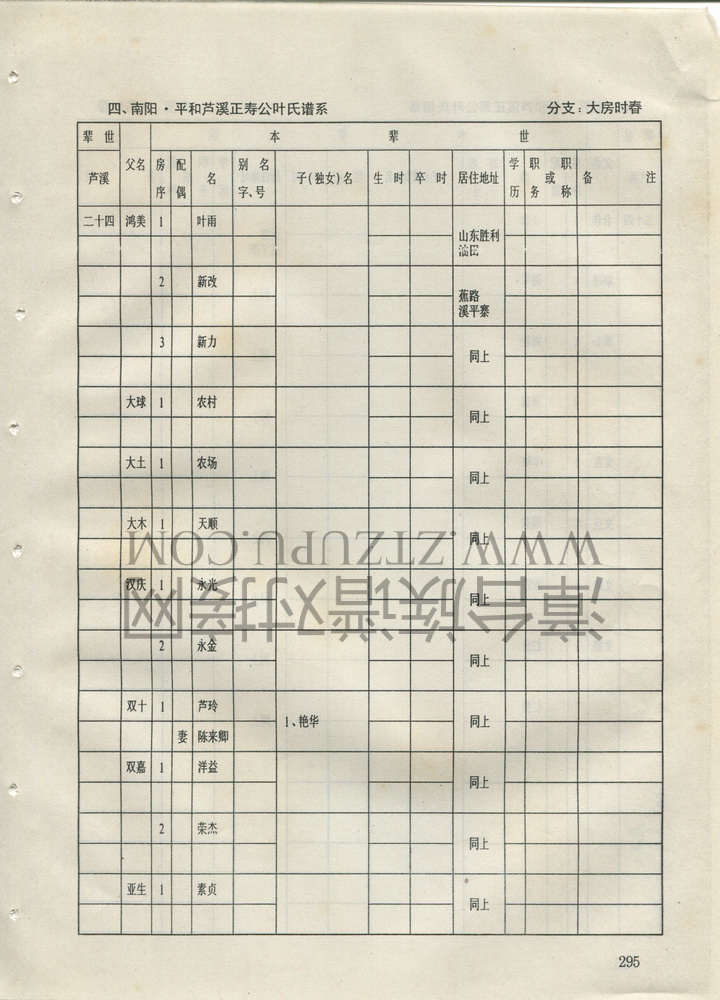 四、南阳·平和芦溪正寿公叶氏谱系 分支：大房时春
辈世 本辈世
芦溪 父名 房序 配偶 名 别名字、号 子(独女)名 生时 卒时 居住地址 学历 职务或职称 备注
二十四 鸿美 1 叶雨 山东胜利油区
2 新改 蕉路溪平寨
3 新力 同上
大球 1 农村 同上
大土 1 农场 同上
大木 1 天顺 同上
WWW.ZTZUPU.COM
汉庆 1 永光 同上
漳台族谱对接网
2 永金 同上
双十 1 芦玲 1、艳华 同上
妻 陈来卿
双嘉 1 洋益 同上
2 荣杰 同上
亚生 1 素贞 同上
295